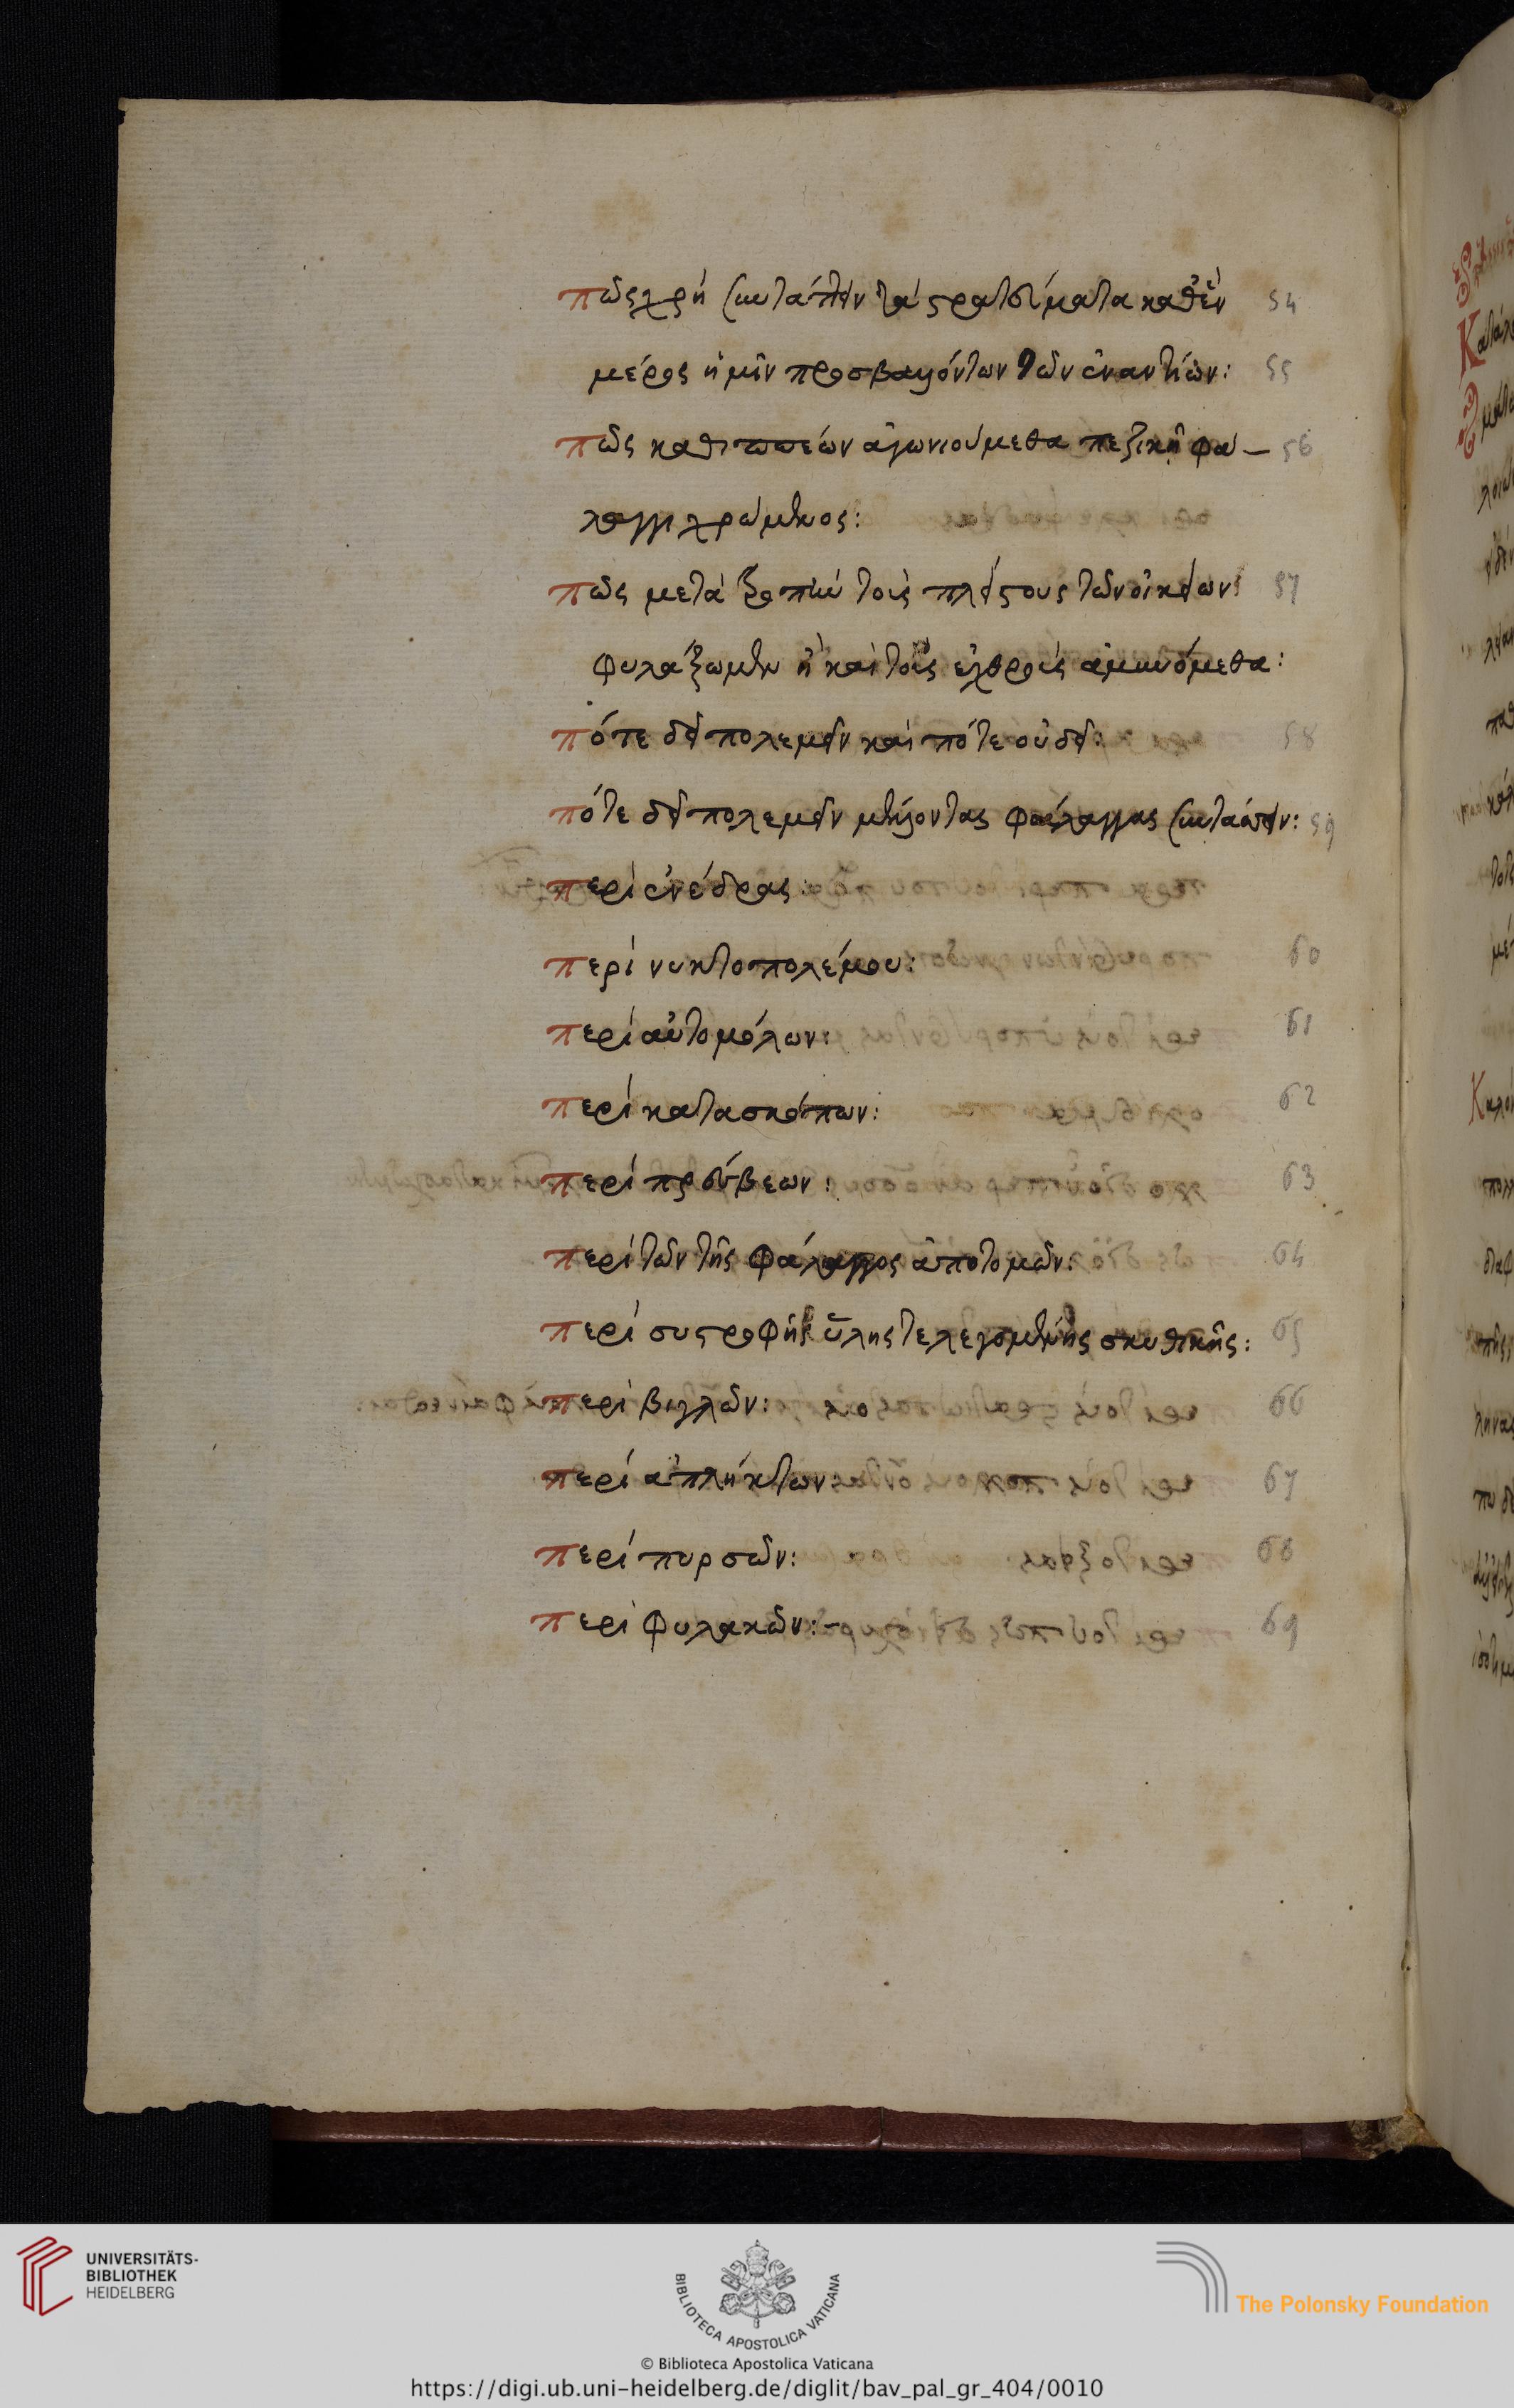 πῶς χρὴ συντάττειν τὰ στρατεύματα καθ' ἓν 54
μέρος ἡμῖν προσβαλλόντων τῶν ἐναντίων: 55
πῶς καθ ἱππέων ἀγωνιούμεθα πεζικῇ φά– 56
λαγγι χρώμενος:
πῶς μετὰ τροπὴν τοὺς πλείστους τῶν οἰκείων 57
φυλάξωμεν ἢ καὶ τοὺς ἐχθροὺς ἀμυνόμεθα:
πότε δεῖ πολεμεῖν καὶ πότε οὐ δεῖ: 58
πότε δεῖ πολεμεῖν μέλλοντας φάλαγγας συντάττειν: 59
περὶ ἐνέδρας:
περὶ νυκτοπολέμου: 60
περὶ αὐτομόλων: 61
περὶ κατασκόπων: 62
περὶ πρέσβεων: 63
περὶ τῶν τῆς φάλαγγος ἀποτομῶν: 64
περὶ συστροφῆς ὕλης τε λεγομένης σκυθικῆς: 65
περὶ βιγλῶν: 66
περὶ ἀπλήκτων 67
περὶ πυρσῶν: 68
περὶ φυλακῶν:– 69
UNIVERSITÄTS-
BIBLIOTHEK
HEIDELBERG
BIBLIOTECA APOSTOLICA VATICANA
The Polonsky Foundation
© Biblioteca Apostolica Vaticana
https://digi.ub.uni-heidelberg.de/diglit/bav_pal_gr_404/0010